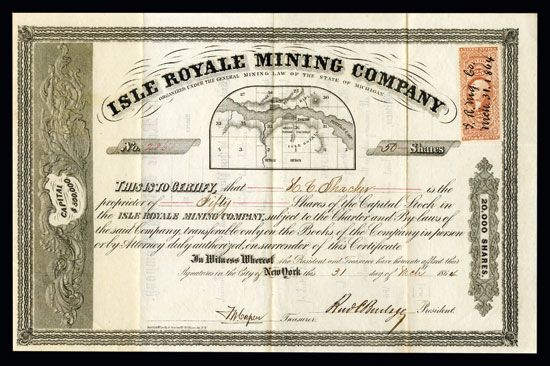 ISLE ROYALE MINING COMPANY
ORGANIZED UNDER THE GENERAL MINING LAW OF THE STATE OF MICHIGAN.
No.
50 Shares
CAPITAL
$500,000
20,000 SHARES.
THIS IS TO CERTIFY, that is the
proprietor of Fifty Shares of the Capital Stock in
the ISLE ROYALE MINING COMPANY, subject to the Charter and By-laws of
the said Company, transferable only on the Books of the Company in person
or by Attorney duly authorized, on surrender of this Certificate
In Witness Whereof the President and Treasurer have hereunto affixed their
Signatures in the City of New York this 31 day of Mch 1864
President.
Treasurer.
Mch 31 1864